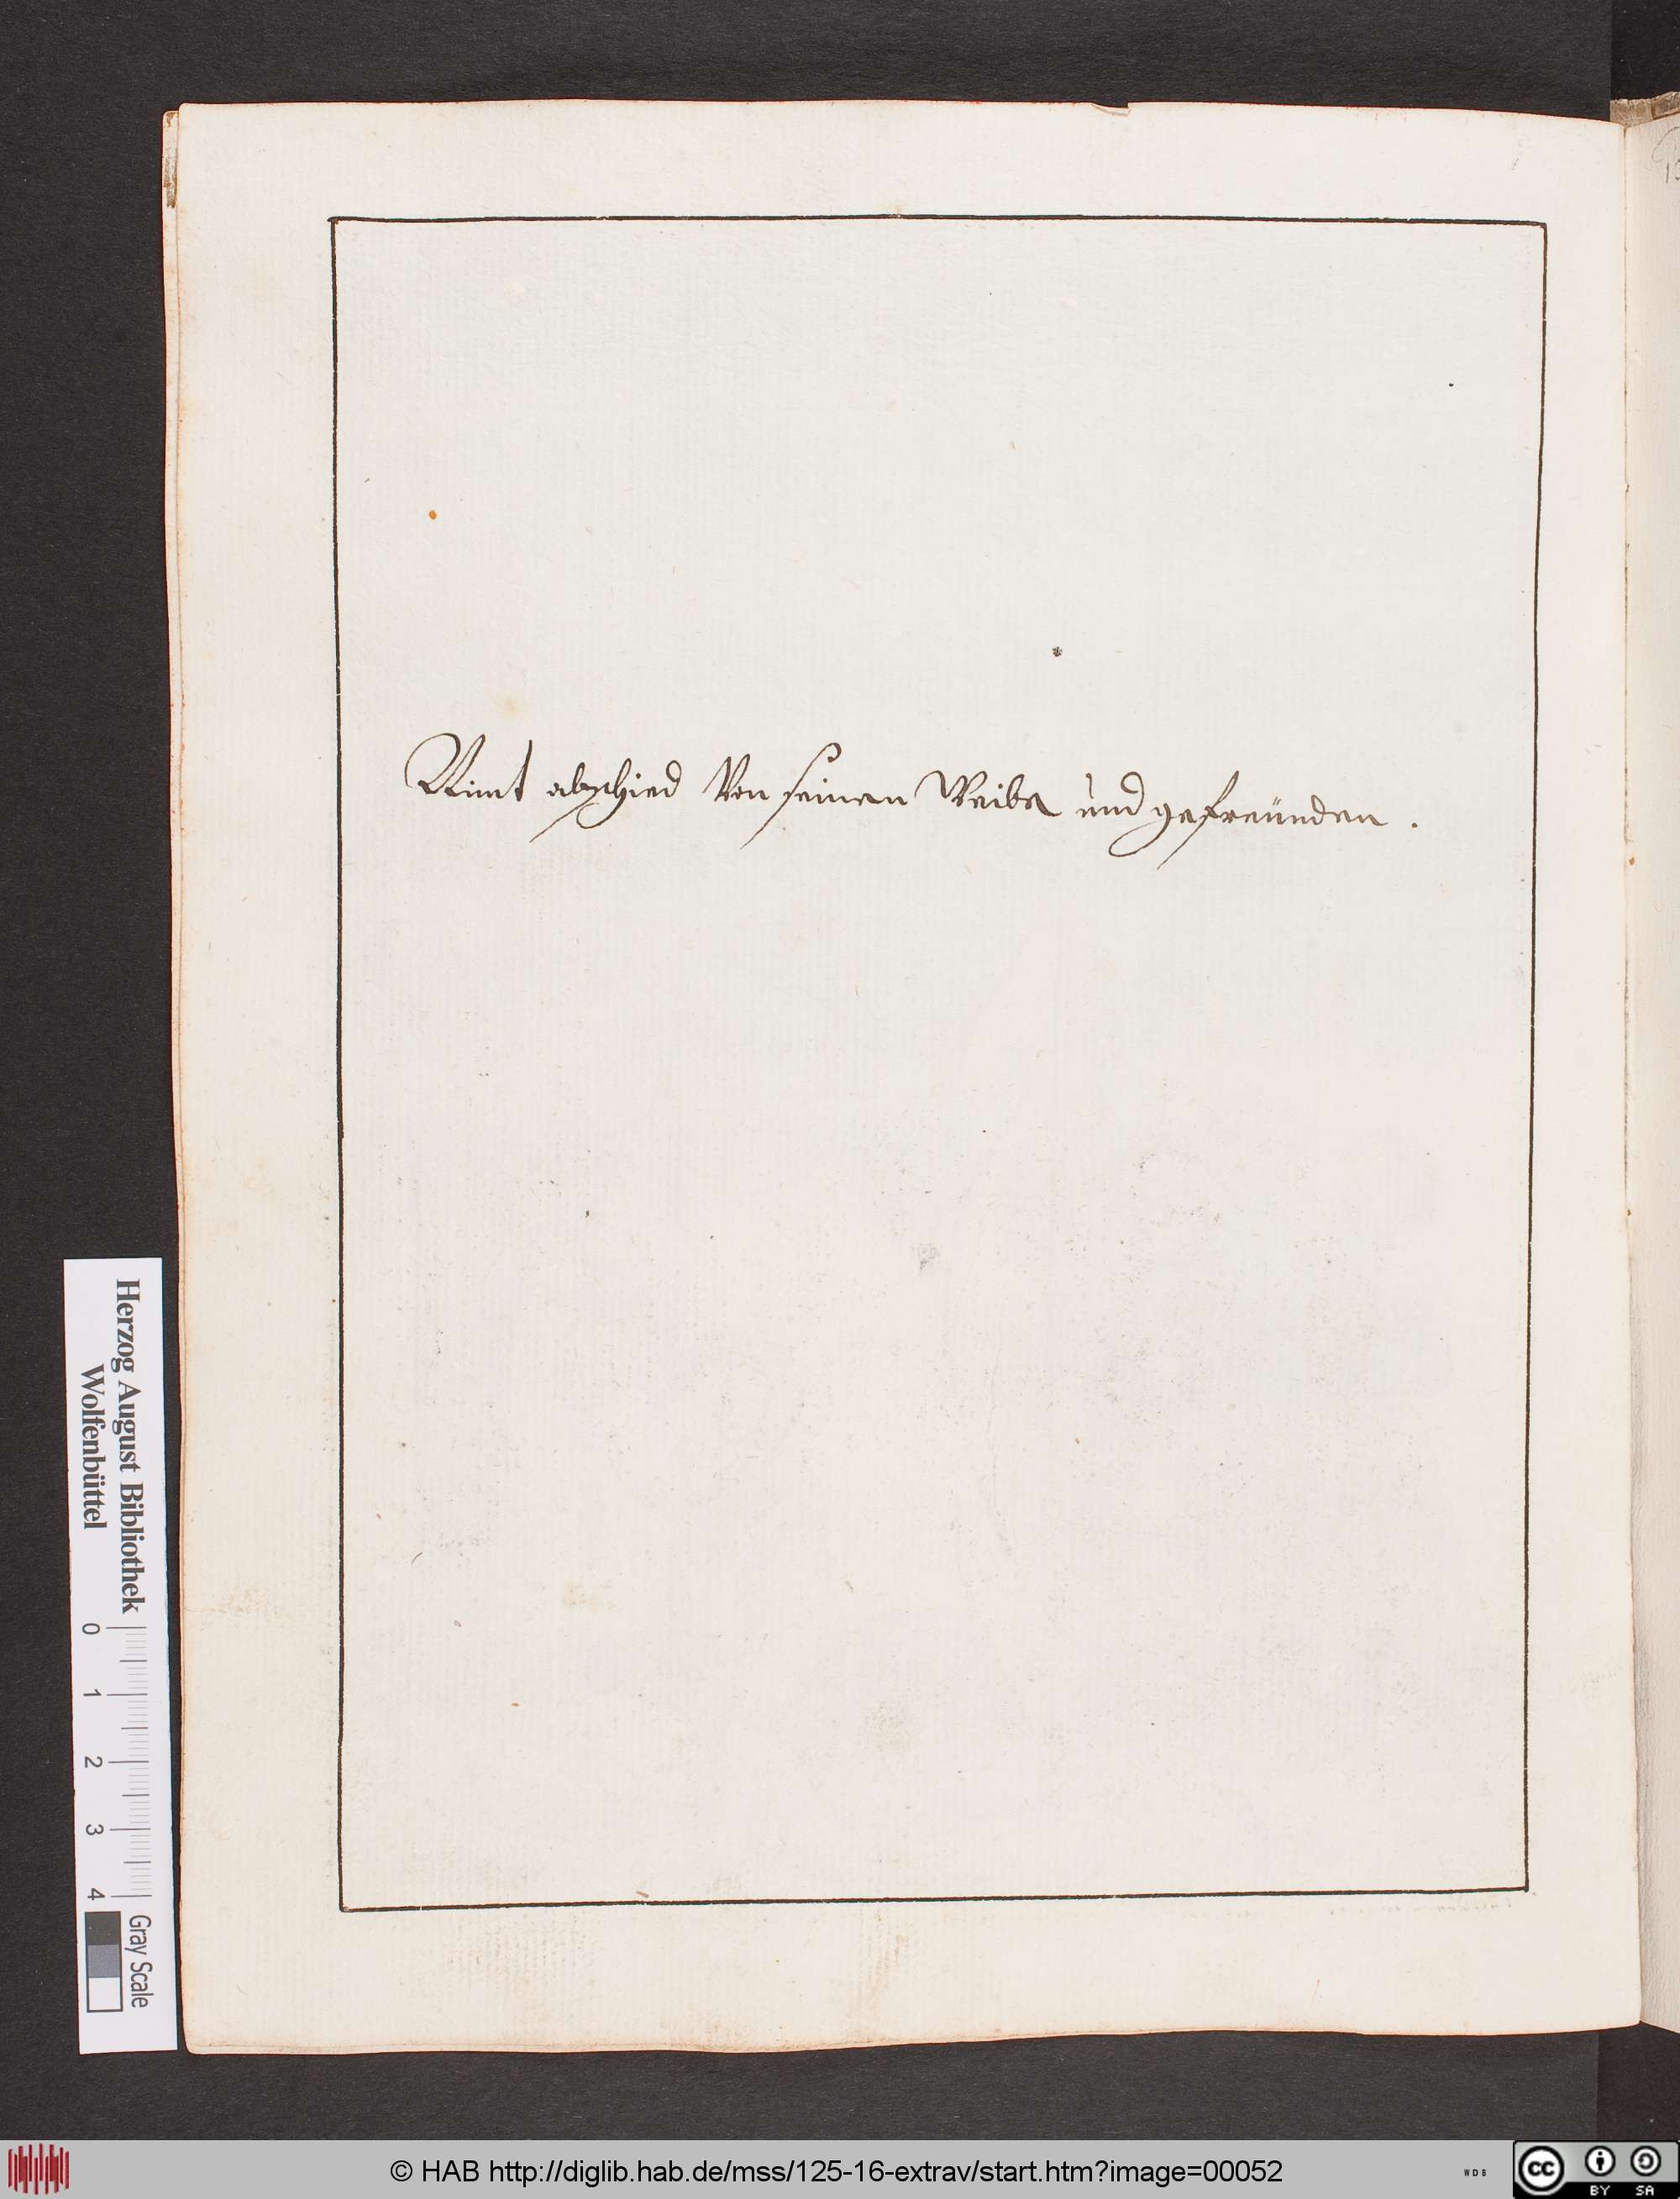 Nimt abschied Von seinen Weibe und gefreünden .
Herzog August Bibliothek
Wolfenbüttel
0 1 2 3 4
Gray Scale
© HAB http://diglib.hab.de/mss/125-16-extrav/start.htm?image=00052
WDB
cc BY SA